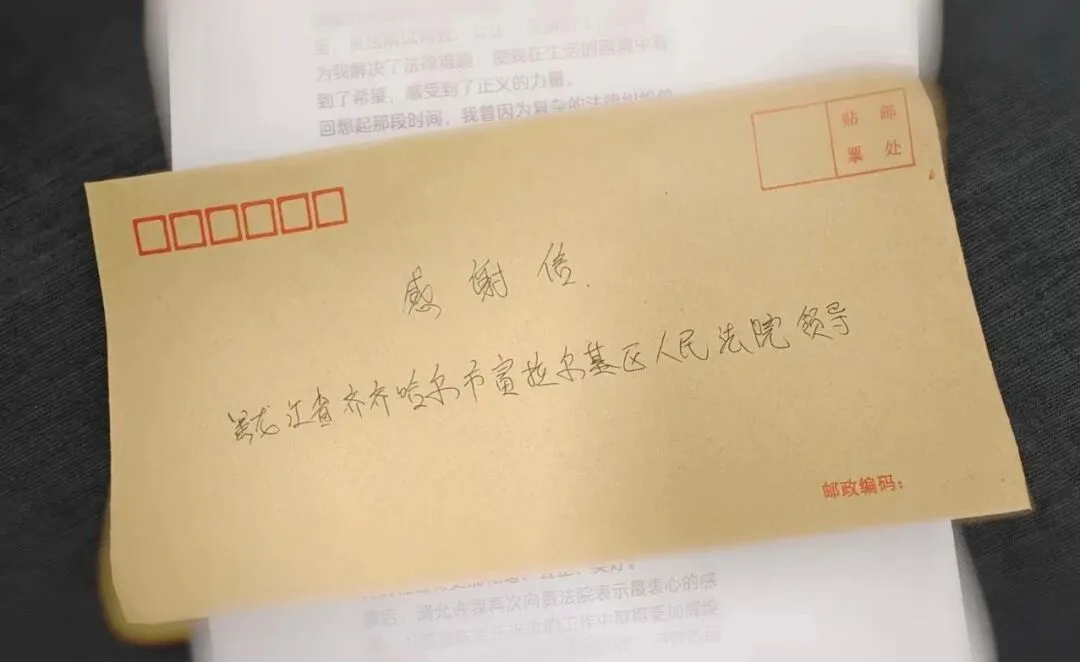 为我解决了法律难题，使我在生活的困境中看
到了希望，感受到了正义的力量。
回想起那段时间，我曾因为复杂的法律纠纷
贴 邮
票 处
感谢信
黑龙江省齐齐哈尔市富拉尔基区人民法院领导
邮政编码：
最后，请允许我再次向贵法院表示最衷心的感